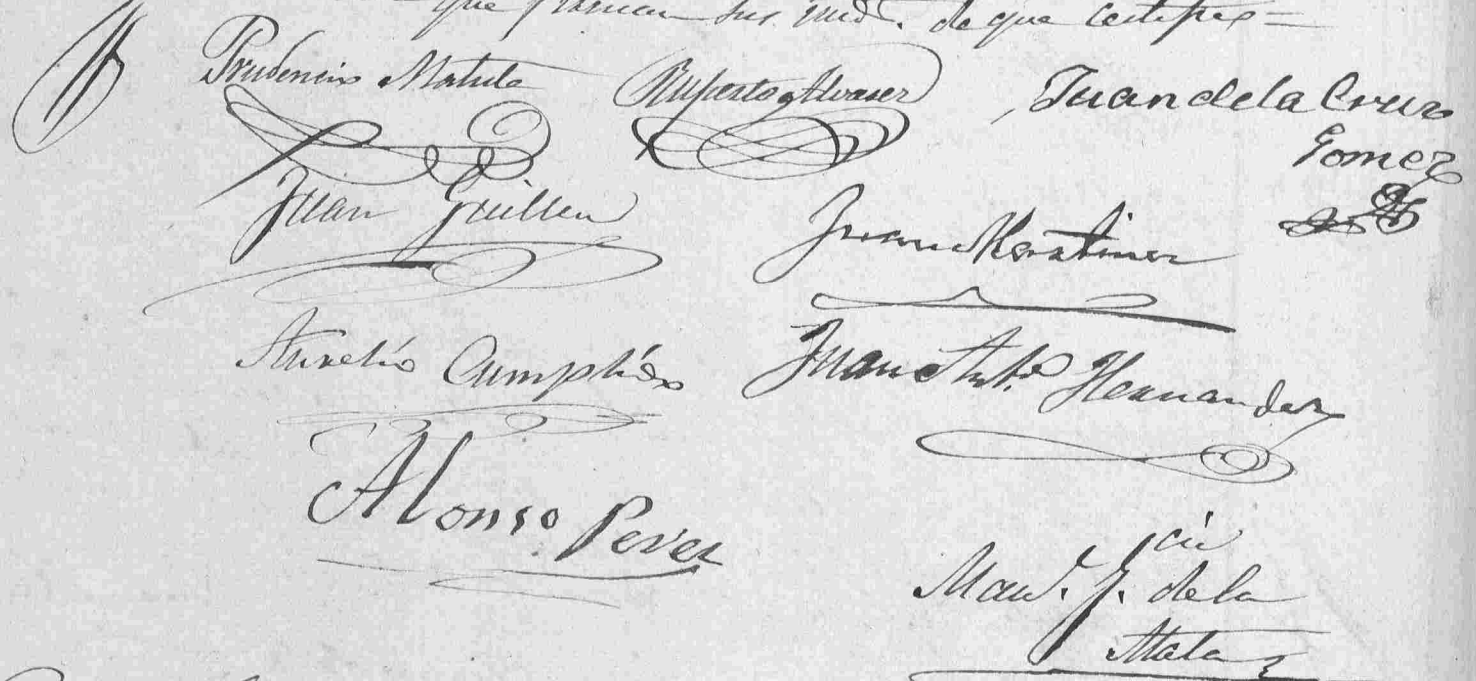 que firman sus md.s de que certifico=
Prudencio Matute
Ruperto Alvarez
Juan de la Cruz
Gomez
Juan Guillen
Juan Martinez
Aurelio Cumplido
Juan Ant.o Hernandez
Alonso Perez
cio
Man.l J. de la
Mata